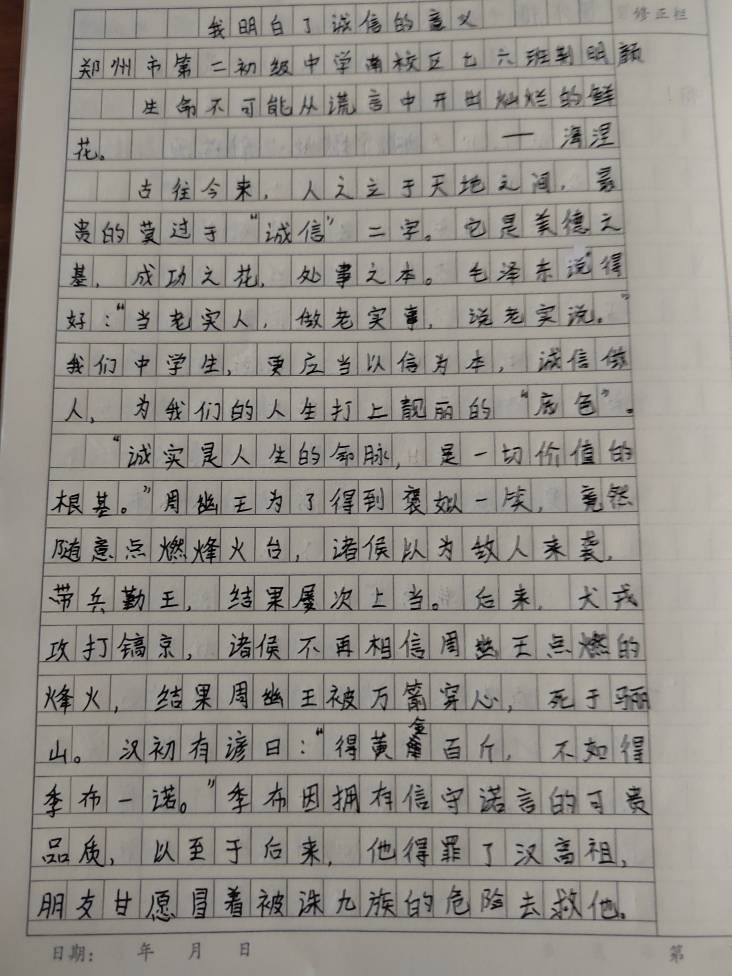 修正栏
我明白了诚信的意义
郑州市第二初级中学南校区七六班荆明颢
生命不可能从谎言中开出灿烂的鲜
花。 — 海涅
古往今来，人之立于天地之间，最
贵的莫过于“诚信”二字。它是美德之
基，成功之花，处事之本。毛泽东说得
好：“当老实人，做老实事，说老实说。”
我们中学生，更应当以信为本，诚信做
人，为我们的人生打上靓丽的“底色”。
“诚实是人生的命脉，是一切价值的
根基。”周幽王为了得到褒姒一笑，竟然
随意点燃烽火台，诸侯以为敌人来袭，
带兵勤王，结果屡次上当。后来，犬戎
攻打镐京，诸侯不再相信周幽王点燃的
烽火，结果周幽王被万箭穿心，死于骊
山。汉初有谚曰：“得黄金百斤，不如得
季布一诺。”季布因拥有信守诺言的可贵
品质，以至于后来，他得罪了汉高祖，
朋友甘愿冒着被诛九族的危险去救他。
日期： 年 月 日 第